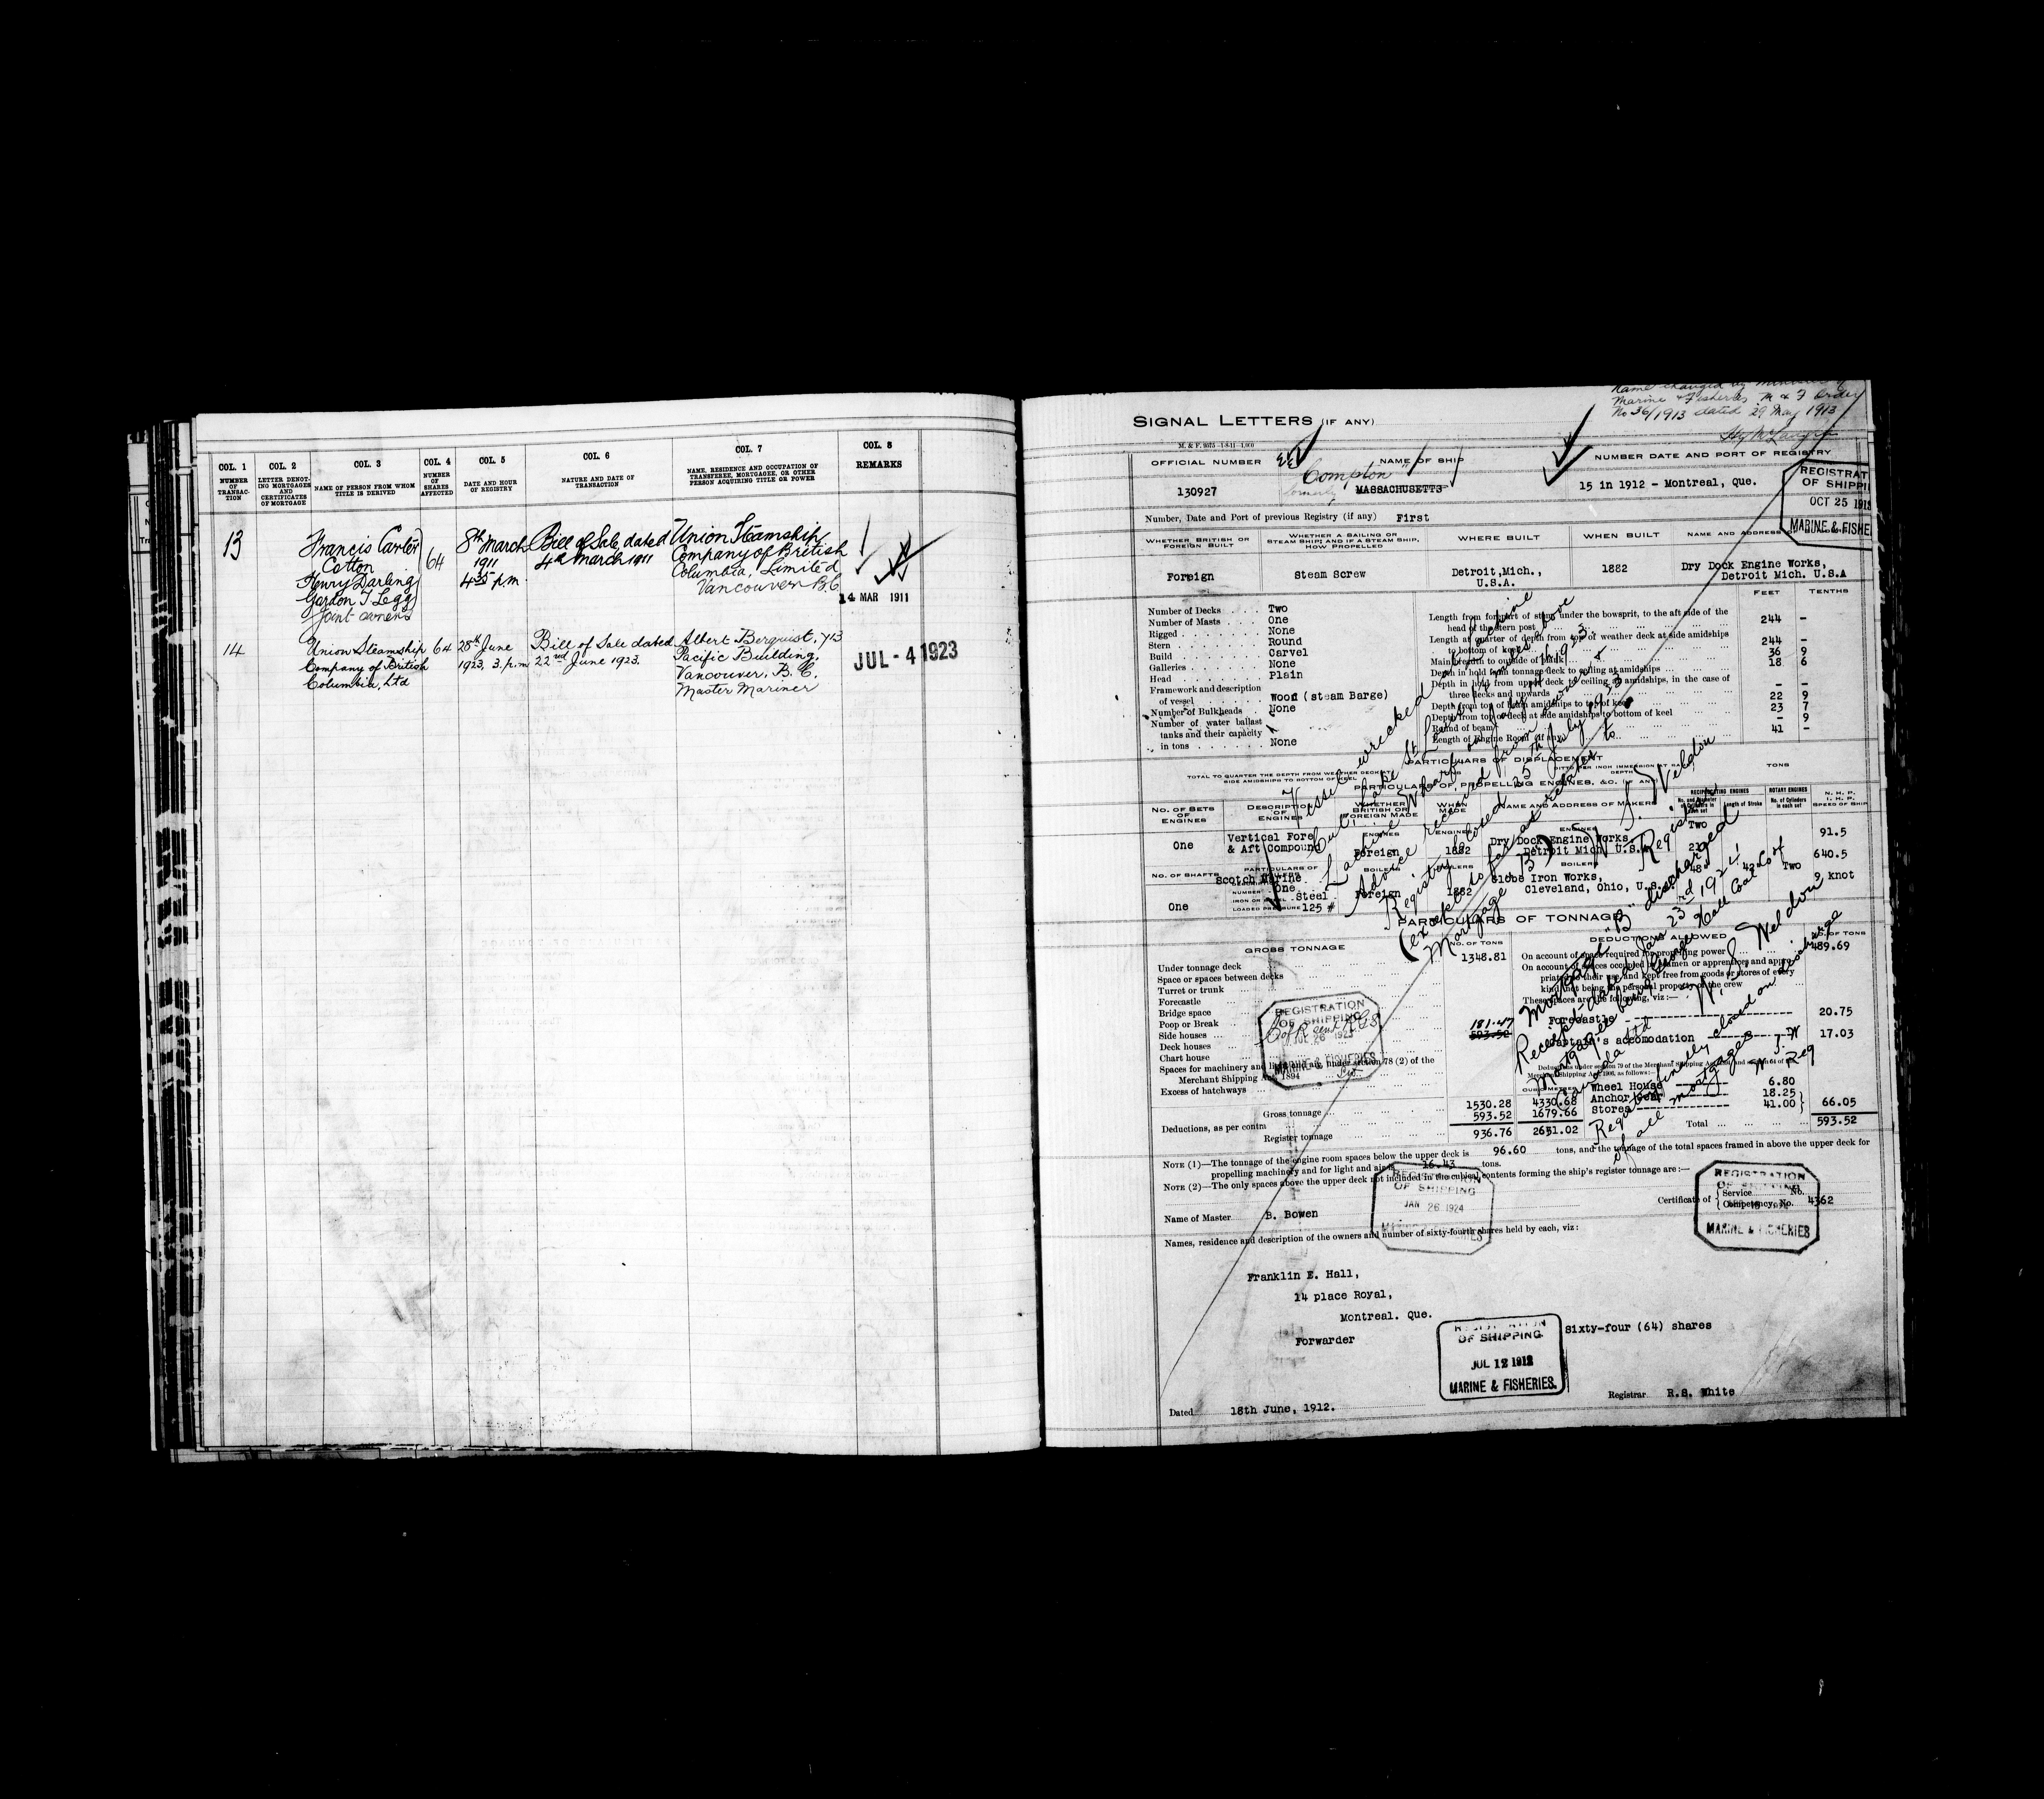 COL. 1
NUMBER OF TRANSAC-TION
COL. 2
LETTER DENOT-ING MORTGAGES AND CERTIFICATES OF MORTGAGE
COL. 3
NAME OF PERSON FROM WHOM TITLE IS DERIVED
COL. 4
NUMBER OF SHARES AFFECTED
COL. 5
DATE AND HOUR OF REGISTRY
COL. 6
NATURE AND DATE OF TRANSACTION
COL. 7
NAME, RESIDENCE AND OCCUPATION OF TRANSFEREE, MORTGAGEE, OR OTHER PERSON ACQUIRING TITLE OR POWER
COL. 8
REMARKS
13
Francis Carter
Cotton
Henry Darling
Gordon T Legg
Joint owners
64
8th March
1911
4.35 p.m.
Bill of Sale dated
4th March 1911
Union Steamship
Company of British
Columbia, Limited
Vancouver B.C.
14 MAR 1911
14
Union Steamship
Company of British
Columbia, Ltd
64
28th June
1923, 3. p.m
Bill of Sale dated
22nd June 1923.
Albert Berquist, 713
Pacific Building,
Vancouver, B.C.
Master Mariner
JUL - 4 1923
Name changed by Minister of
Marine & Fisheries M & F Order
No 36/1913 dated 29 May 1913
SIGNAL LETTERS (IF ANY)
M. & F. 9075-1-8-11-1,000
OFFICIAL NUMBER
NAME OF SHIP
NUMBER DATE AND PORT OF REGISTRY
"Compton"
130927
formerly MASSACHUSETTS
15 in 1912 - Montreal, Que.
REGISTRAT
OF SHIPPI
OCT 25 191
MARINE & FISHE
Number, Date and Port of previous Registry (if any) First
WHETHER BRITISH OR FOREIGN BUILT
WHETHER A SAILING OR STEAM SHIP; AND IF A STEAM SHIP, HOW PROPELLED
WHERE BUILT
WHEN BUILT
NAME AND ADDRESS
Foreign
Steam Screw
Detroit, Mich., U.S.A.
1882
Dry Dock Engine Works,
Detroit Mich. U.S.A
FEET
TENTHS
Number of Decks Two
Number of Masts One
Rigged None
Stern Round
Build Carvel
Galleries None
Head Plain
Framework and description of vessel Wood (steam Barge)
Number of Bulkheads None
Number of water ballast tanks and their capacity in tons None
Length from forepart of stem, under the bowsprit, to the aft side of the head of the stern post 244 -
Length at quarter of depth from top of weather deck at side amidships to bottom of keel 244 -
Main breadth to outside of plank 36 9
Depth in hold from tonnage deck to ceiling at amidships 18 6
Depth in hold from upper deck to ceiling at amidships, in the case of three decks and upwards - -
Depth from top of beam amidships to top of keel 22 9
Depth from top of deck at side amidships to bottom of keel 23 7
Round of beam - 9
Length of Engine Room (if any) 41 -
Vessel wrecked at Lachine
Cut, Lake St Louis, 7 miles above
Lachine Wharf on June 16, 1923.
Advice received from owner &
Registry closed 25th July 1923
(except so far as relates to
Mortgage B)
W. S. Weldon
Registrar
PARTICULARS OF DISPLACEMENT
TOTAL TO QUARTER THE DEPTH FROM WEATHER DECK AT SIDE AMIDSHIPS TO BOTTOM OF KEEL
TONS
PARTICULARS OF PROPELLING ENGINES, &C. (IF ANY)
NO. OF SETS OF ENGINES
DESCRIPTION OF ENGINES
WHETHER BRITISH OR FOREIGN MADE
WHEN MADE
NAME AND ADDRESS OF MAKERS
RECIPROCATING ENGINES
Length of Stroke
ROTARY ENGINES
No. of Cylinders in each set
N. H. P.
I. H. P.
SPEED OF SHIP
One
Vertical Fore
& Aft Compound
ENGINES
Foreign
ENGINES
1882
ENGINES
Dry Dock Engine Works,
Detroit Mich. U.S.A
Two
48"
42"
Two
91.5
640.5
9 knot
NO. OF SHAFTS
One
PARTICULARS OF BOILERS
Scotch Marine
NUMBER One
IRON OR STEEL Steel
LOADED PRESSURE 125 #
BOILERS
Foreign
BOILERS
1882
BOILERS
Globe Iron Works,
Cleveland, Ohio, U.S.
PARTICULARS OF TONNAGE
GROSS TONNAGE
NO. OF TONS
DEDUCTIONS ALLOWED
NO. OF TONS
Under tonnage deck 1348.81
Space or spaces between decks
Turret or trunk
Forecastle
Bridge space
Poop or Break
Side houses 181.47
593.52
Deck houses
Chart house
Spaces for machinery and light and air, under section 78 (2) of the Merchant Shipping Act, 1894
Excess of hatchways
On account of space required for propelling power 489.69
On account of spaces occupied by seamen or apprentices, and appropriated to their use, and kept free from goods or stores of every kind, not being the personal property of the crew
These spaces are the following, viz:—
Forecastle 20.75
Captain's accomodation 17.03
Deductions under section 79 of the Merchant Shipping Act, 1894, and section 54 of the Merchant Shipping Act, 1906, as follows:—
Wheel House 6.80
Anchor Gear 18.25
Stores 41.00
66.05
Total 593.52
CUBIC METRES
Gross tonnage 1530.28 4330.68
Deductions, as per contra 593.52 1679.66
Register tonnage 936.76 2651.02
Mortgage "B" discharged
Receipt dated Jan 23rd 1924
Mortgagee being George Hall Coal Co of
Canada Ltd
W. S. Weldon
Reg
REGISTRATION
OF SHIPPING
JUL 26 1923
MARINE & FISHERIES
NOTE (1)—The tonnage of the engine room spaces below the upper deck is 96.60 tons, and the tonnage of the total spaces framed in above the upper deck for
propelling machinery and for light and air is 16.43 tons.
NOTE (2)—The only spaces above the upper deck not included in the cubical contents forming the ship's register tonnage are:—
REGISTRATION
OF SHIPPING
JAN 26 1924
MARINE & FISHERIES
REGISTRATION
OF SHIPPING
MARINE & FISHERIES
Name of Master B. Bowen
Certificate of
Service No.
Competency, No. 4362
Names, residence and description of the owners and number of sixty-fourth shares held by each, viz:
Franklin E. Hall,
14 place Royal,
Montreal. Que.
Forwarder
Sixty-four (64) shares
REGISTRATION
OF SHIPPING
JUL 12 1912
MARINE & FISHERIES.
Registrar R.S. White
Dated 18th June, 1912.